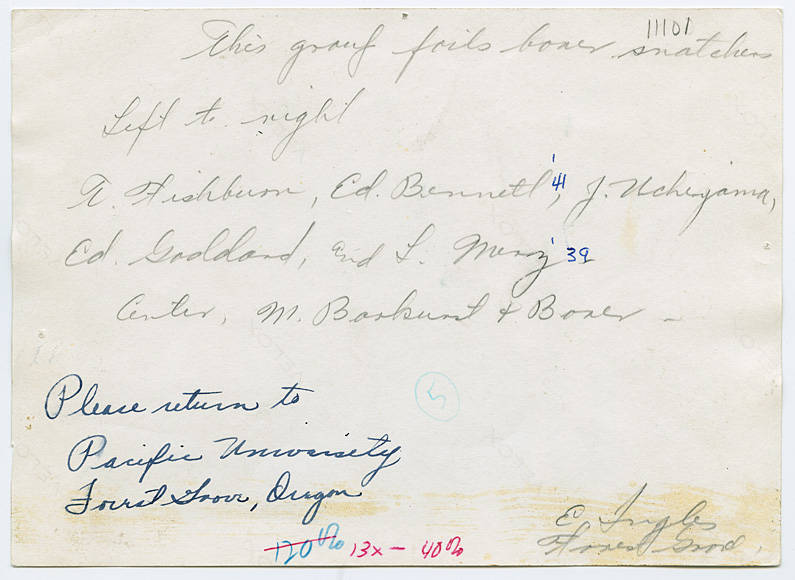 11101
This group foils boxer snatchers
Left to right
A. Fishburn, Ed. Bennett '41, J. Uchiyama,
Ed. Goddard, and L. Merz '39
Center, M. Barkurst & Boxer -
5
Please return to
Pacific University
Forest Grove, Oregon
E Ingles
Forest Grove,
120% 13x - 40%